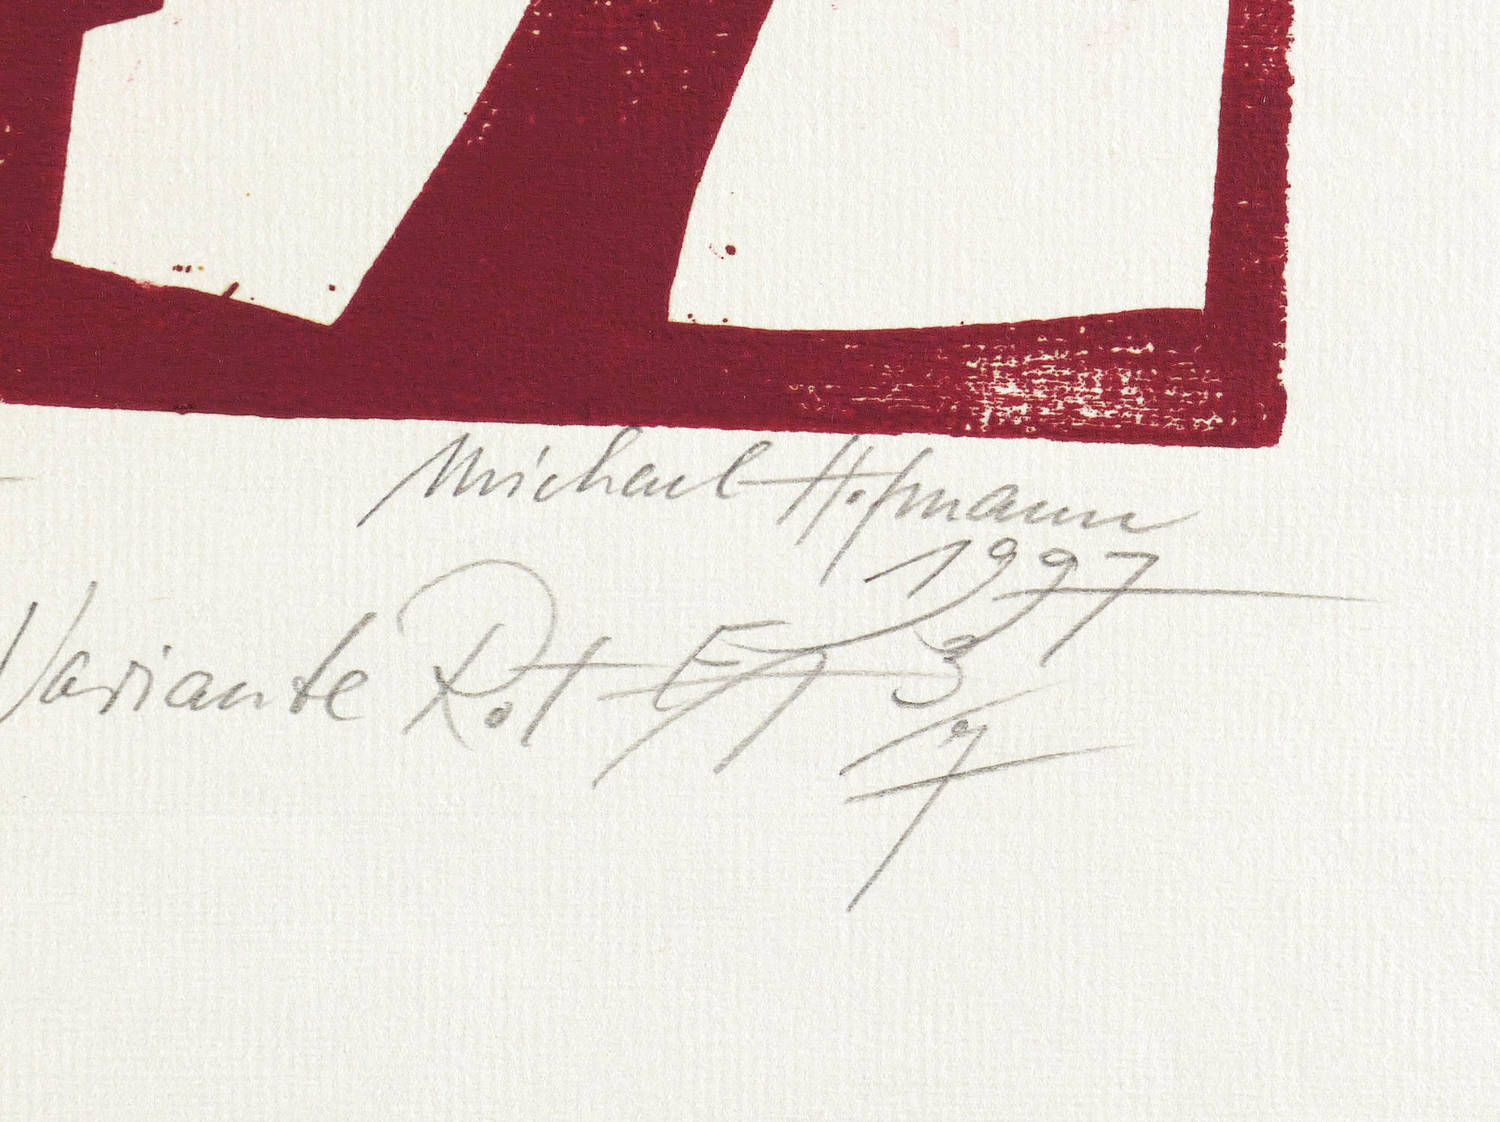 Michael Hofmann
1997
Variante Rot EA 3/7